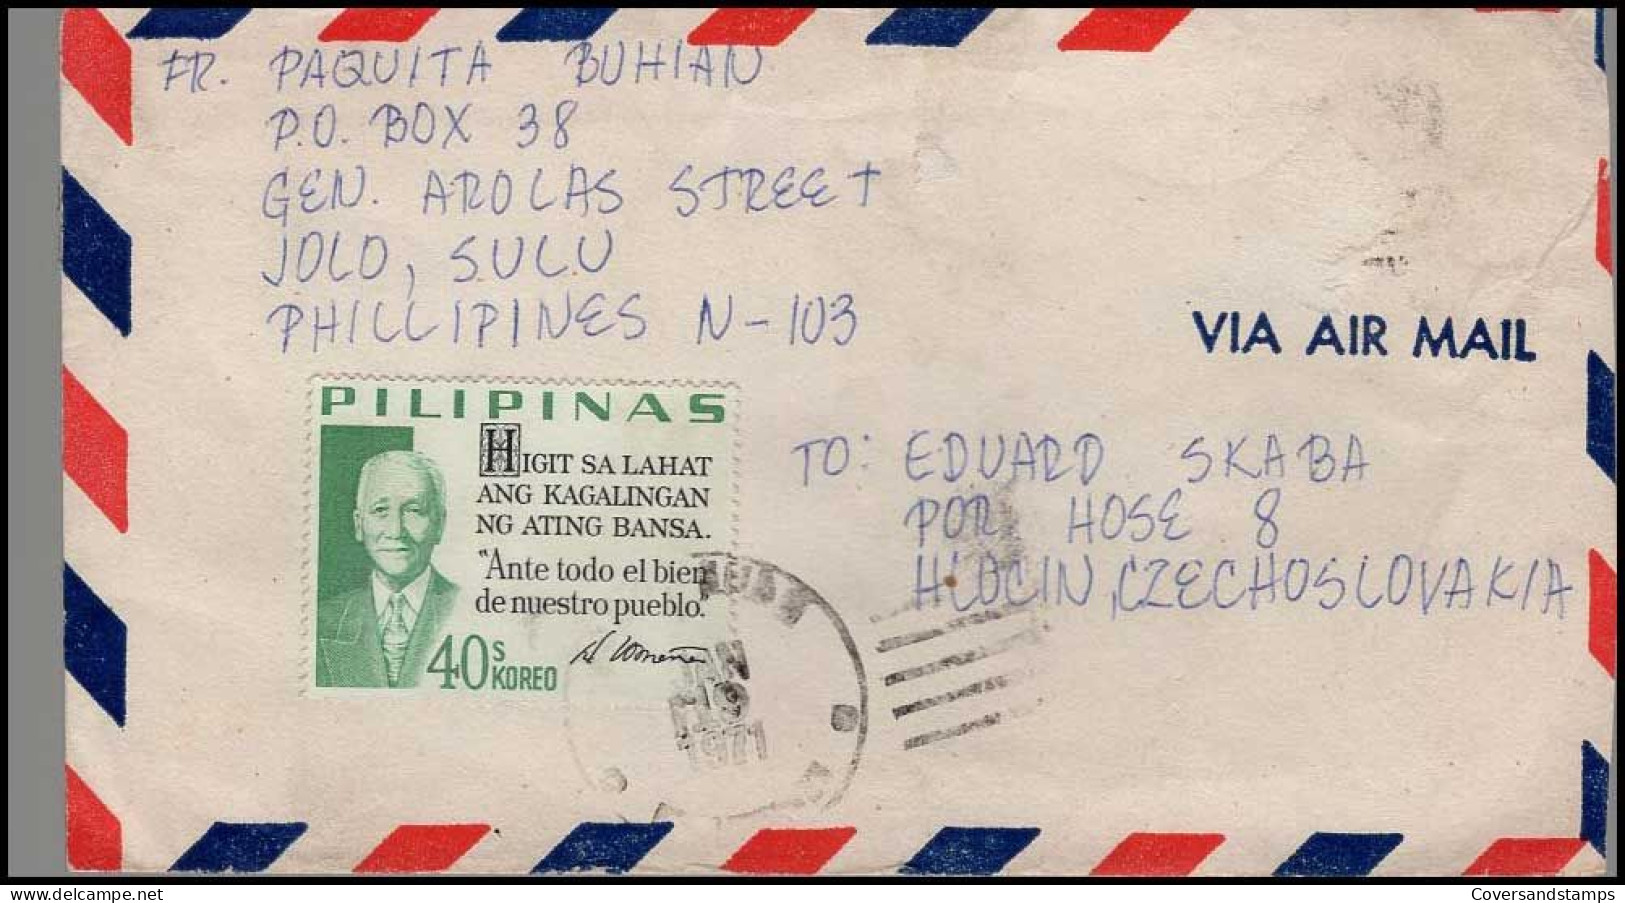 FR. PAQUITA BUHIAN
P.O. BOX 38
GEN. AROLAS STREET
JOLO, SULU
PHILLIPINES N-103
VIA AIR MAIL
PILIPINAS
HIGIT SA LAHAT
ANG KAGALINGAN
NG ATING BANSA.
"Ante todo el bien
de nuestro pueblo."
40s KOREO
TO: EDUARD SKABA
POR HOSE 8
HLOCIN, CZECHOSLOVAKIA
JAN
19
1971
Coversandstamps